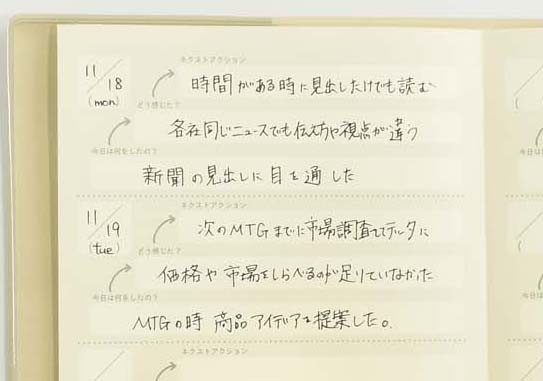 ネクストアクション
11/18
(mon)
時間がある時に見出しだけでも読む
どう感じた?
各社同じニュースでも伝え方や視点が違う
今日は何をしたの?
新聞の見出しに目を通した
ネクストアクション
11/19
(tue)
次のMTGまでに市場調査してデータに
どう感じた?
価格や市場をしらべるのが足りていなかった
今日は何をしたの?
MTGの時 商品アイディアを提案した。
ネクストアクション